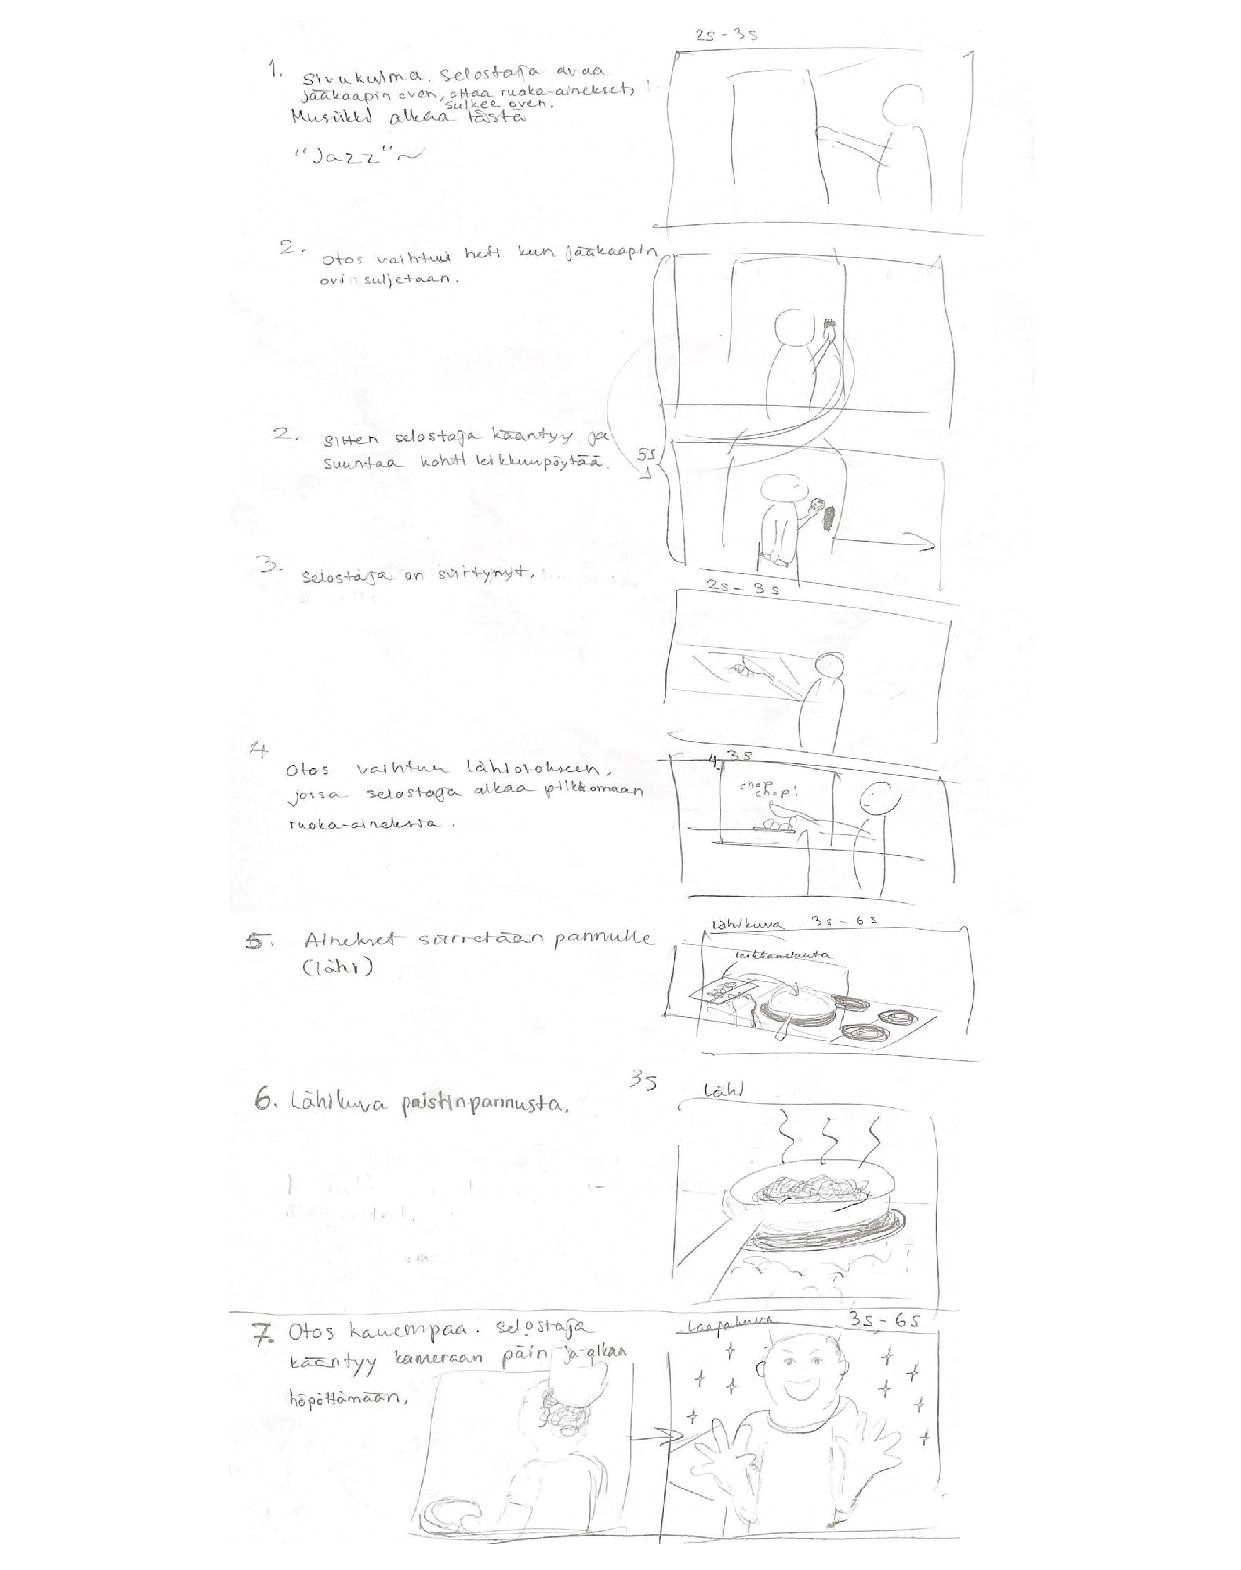 2s - 3s
1. Sivukulma. Selostaja avaa
jääkaapin oven, ottaa ruoka-ainekset,
sulkee oven.
Musiikki alkaa tästä
"Jazz"~
2. Otos vaihtuu heti kun jääkaapin
ovi suljetaan.
2. Sitten selostaja kääntyy ja
suuntaa kohti leikkuupöytää.
5s
3. Selostaja on siirtynyt.
2s - 3s
4 Otos vaihtuu lähiotokseen,
jossa selostaja alkaa pilkkomaan
ruoka-aineksia.
4. 3s
chop
chop!
5. Ainekset siirretään pannulle
(lähi)
Lähikuva 3s - 6s
leikkauslauta
6. Lähikuva paistinpannusta.
3s
Lähi
7. Otos kauempaa. Selostaja
kääntyy kameraan päin ja alkaa
höpöttämään.
Laajakuva 3s - 6s